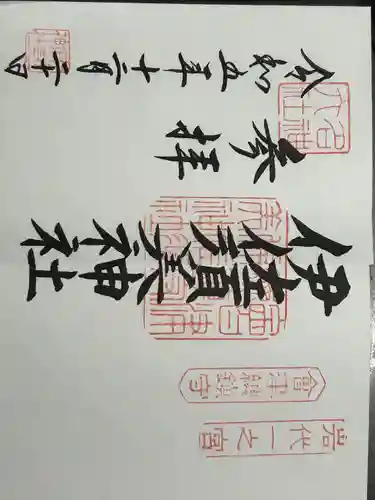 岩代一之宮
會津總鎮守
伊佐須美神社
参拝
令和五年十二月二十日